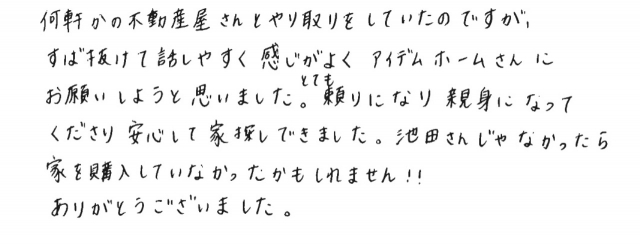 何軒かの不動産屋さんとやり取りをしていたのですが、
すば抜けて話しやすく感じがよくアイデムホームさんに
お願いしようと思いました。とても頼りになり親身になって
くださり安心して家探しできました。池田さんじゃなかったら
家を購入していなかったかもしれません!!
ありがとうございました。